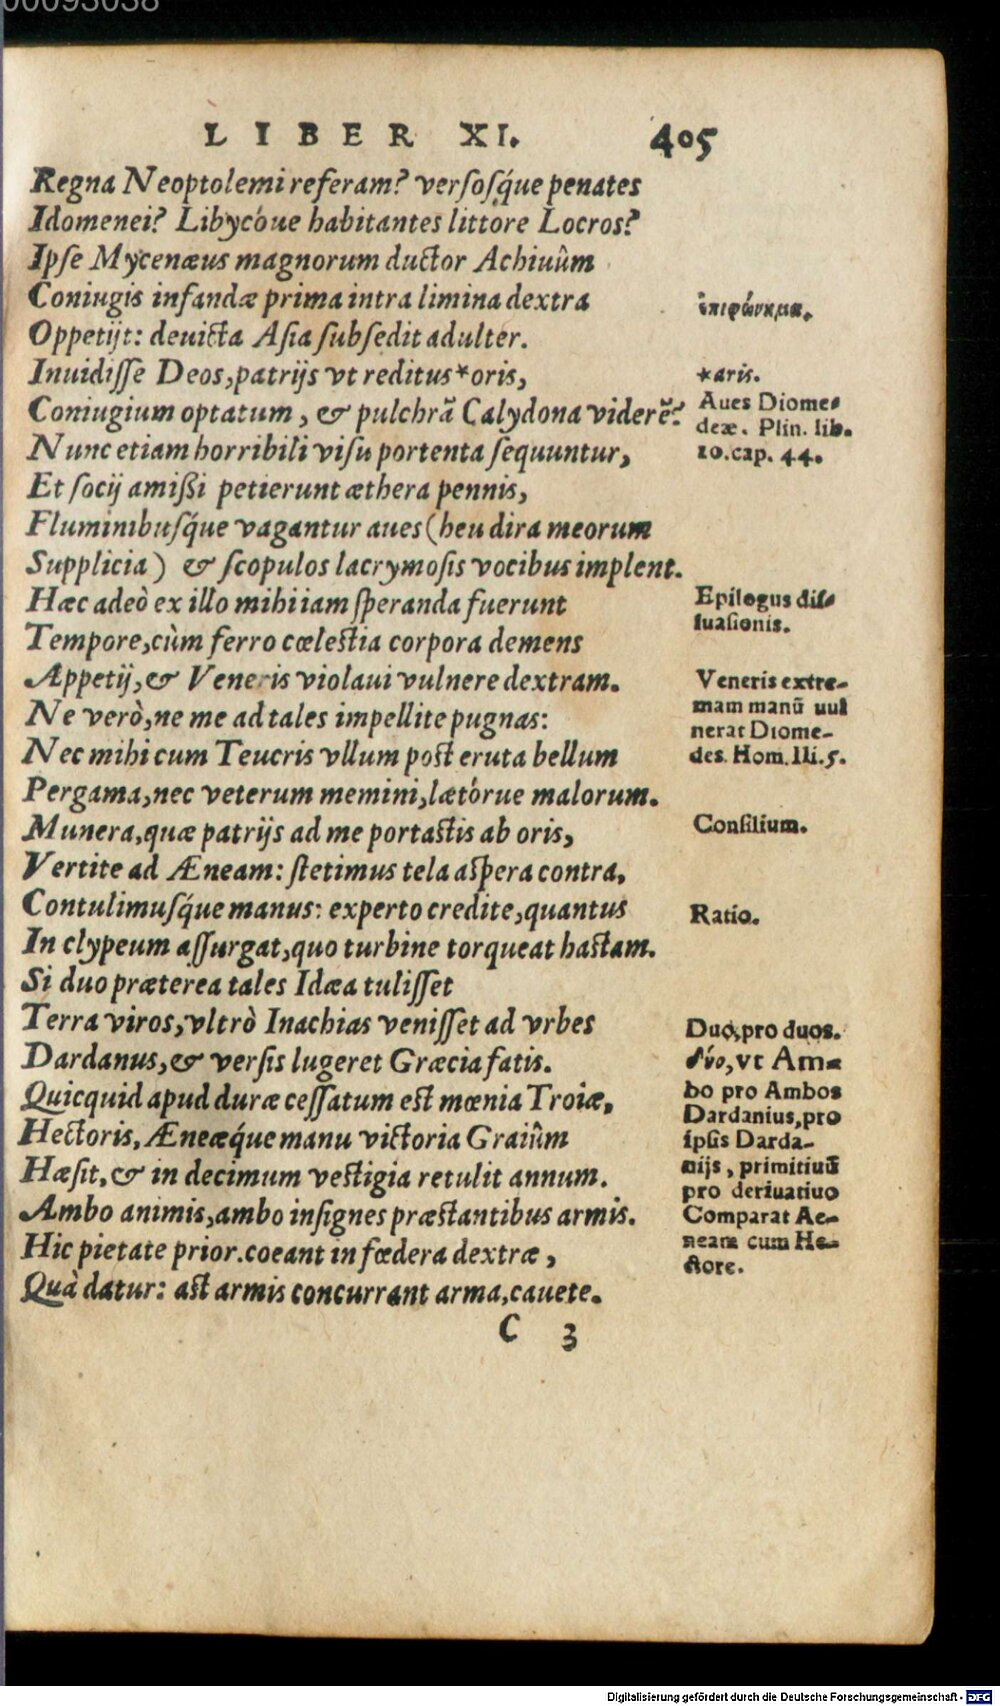 00093038
LIBER XI. 405
Regna Neoptolemi referam? versosq́ue penates
Idomenei? Libycóue habitantes littore Locros?
Ipse Mycenæus magnorum ductor Achiuûm
Coniugis infandæ prima intra limina dextra
Oppetijt: deuicta Asia subsedit adulter.
Inuidisse Deos, patrijs vt reditus*oris,
Coniugium optatum, & pulchrã Calydona viderẽ?
Nunc etiam horribili visu portenta sequuntur,
Et socij amißi petierunt æthera pennis,
Fluminibusq́ue vagantur aues (heu dira meorum
Supplicia) & scopulos lacrymosis vocibus implent.
Hæc adeò ex illo mihi iam speranda fuerunt
Tempore, cùm ferro cœlestia corpora demens
Appetij, & Veneris violaui vulnere dextram.
Ne verò, ne me ad tales impellite pugnas:
Nec mihi cum Teucris vllum post eruta bellum
Pergama, nec veterum memini, lætórue malorum.
Munera, quæ patrijs ad me portastis ab oris,
Vertite ad Æneam: stetimus tela aspera contra,
Contulimusq́ue manus: experto credite, quantus
In clypeum assurgat, quo turbine torqueat hastam.
Si duo præterea tales Idæa tulisset
Terra viros, vltrò Inachias venisset ad vrbes
Dardanus, & versis lugeret Græcia fatis.
Quicquid apud duræ cessatum est mœnia Troiæ,
Hectoris, Æneæq́ue manu victoria Graiûm
Hæsit, & in decimum vestigia retulit annum.
Ambo animis, ambo insignes præstantibus armis.
Hic pietate prior. coeant in fœdera dextræ,
Quà datur: ast armis concurrant arma, cauete.
C 3
ἐπιφώνημα.
*aris.
Aues Diome-
deæ. Plin. lib.
10. cap. 44.
Epilogus dis-
suasionis.
Veneris extre-
mam manũ uul
nerat Diome-
des. Hom. Ili. 5.
Consilium.
Ratio.
Duo, pro duos.
δύο, vt Am-
bo pro Ambos
Dardanius, pro
ipsis Darda-
nijs, primitiuũ
pro deriuatiuo
Comparat Ae-
neam cum He-
ctore.
Digitalisierung gefördert durch die Deutsche Forschungsgemeinschaft - DFG